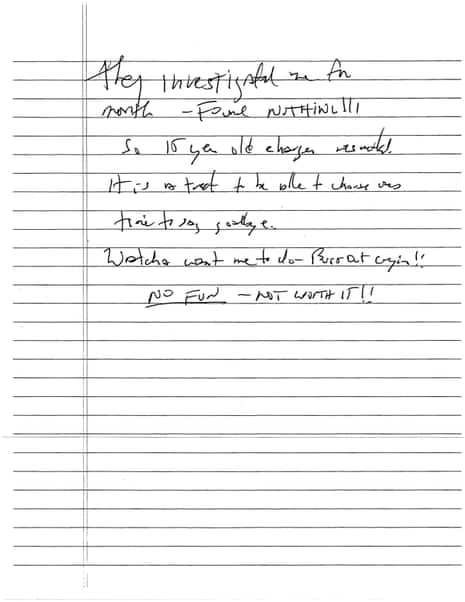 They investigated me for
month – Found NOTHING!!!
So 15 year old charges resulted.
It is a treat to be able to choose one's
time to say goodbye.
Watcha want me to do – Burst out cryin!!
NO FUN – NOT WORTH IT!!